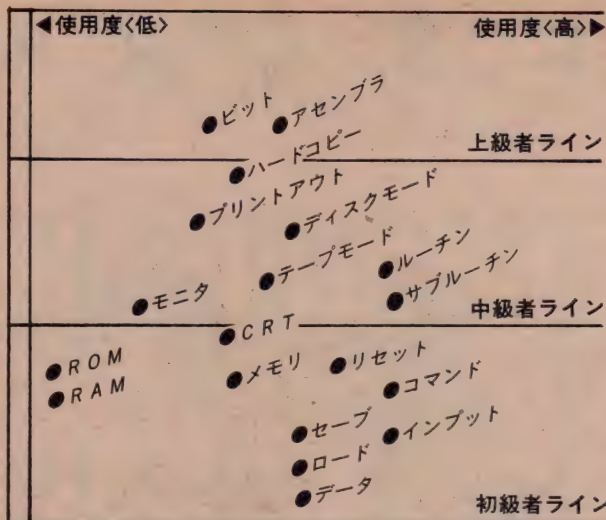 ◀使用度〈低〉
使用度〈高〉▶
ビット
アセンブラ
上級者ライン
ハードコピー
プリントアウト
ディスクモード
テープモード
ルーチン
サブルーチン
モニタ
中級者ライン
CRT
ROM
RAM
メモリ
リセット
コマンド
セーブ
インプット
ロード
データ
初級者ライン